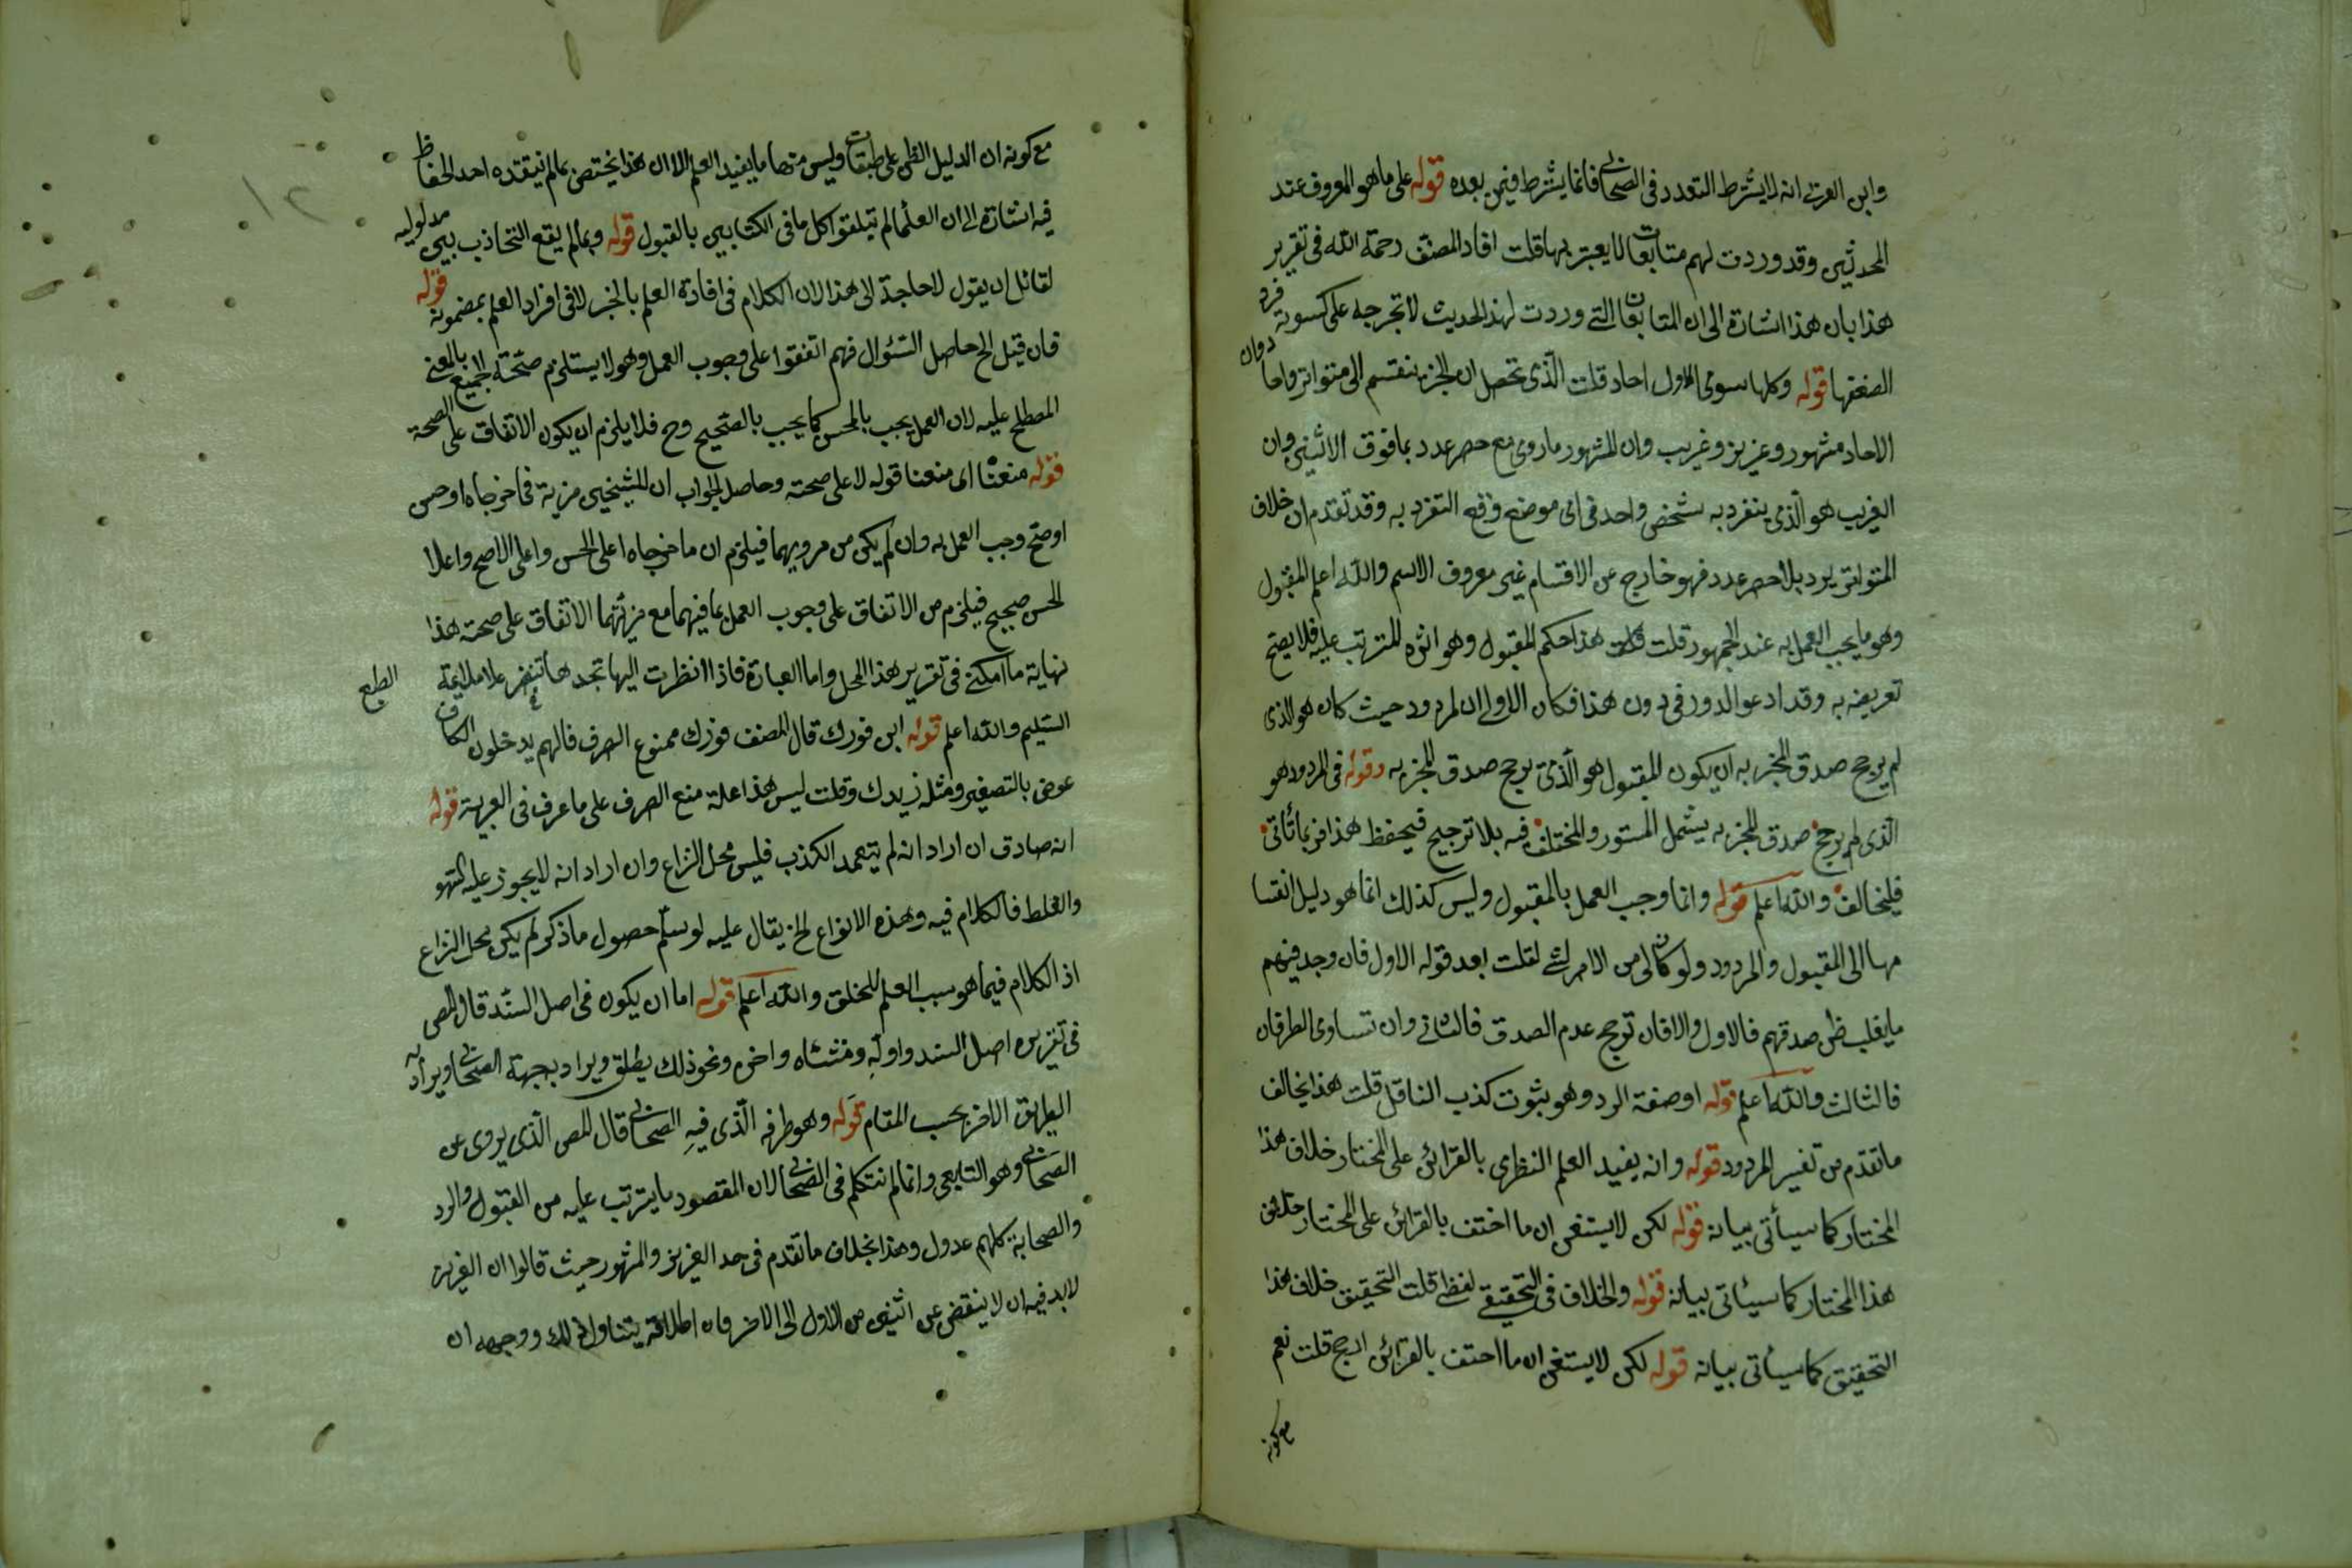 وابن العربى انه لا يشترط التعدد فى الصحابى فانما يشترط فيمن بعده قوله على ما هو المعروف عند
المحدثين وقد وردت لهم متابعات لا يعتبر بها قلت افاد المصنف رحمة الله فى تقرير
هذا بان هذا اشارة الى ان المتابعات التى وردت لهذا الحديث لا تخرجه على كسوته فرد
الضعفها قوله وكلها سوى الاول احاد قلت الذى تحصل ان الخبر ينقسم الى متواتر واحاد وان
الاحاد مشهور وعزيز وغريب وان المشهور ما روى مع حصر عدد بما فوق الاثنين وان
الغريب هو الذى ينفرد به شخص واحد فى اى موضع وقع التفرد به وقد تقدم ان خلاف
المتواتر يرد بلا حصر عدد فهو خارج عن الاقسام غير معروف الاسم والله اعلم المقبول
وهو ما يجب العمل به عند الجمهور قلت قلت هذا حكم المقبول وهو اثره المترتب عليه فلا يصح
تعريفه به وقد ادعو الدور فى دون هذا فكان الاولى ان المردود حيث كان هو الذى
لم يرجح صدق المخبر به ان يكون المقبول هو الذى يرجح صدق المخبر به وقوله فى المردود هو
الذى لم يرجح صدق المخبر به يشمل المستور والمختلف فيه بلا ترجيح فيحفظ هذا فربما تأتى
فليخالف والله اعلم قوله وانما وجب العمل بالمقبول وليس كذلك انما هو دليل انقسا
مها الى المقبول والمردود ولو كان لى من الامر شئ لقلت بعد قوله الاول فان وجد فيهم
ما يغلب ظن صدقهم فالاول والا فان ترجح عدم الصدق فالثانى وان تساوى الطرفان
فالثالث والله اعلم قوله او صفة الرد وهو ثبوت كذب الناقل قلت هذا يخالف
ما تقدم من تفسير المردود قوله وانه يفيد العلم النظرى بالقرائن على المختار خلاف هذا
المختار كما سيأتى بيانه قوله لكن لا يستغنى ان ما احتف بالقرائن على المختار خلاف
هذا المختار كما سيأتى بيانه قوله والخلاف فى التحقيق لفظى قلت التحقيق خلاف هذا
التحقيق كما سيأتى بيانه قوله لكن لا يستغنى ان ما احتف بالقرائن ارجح قلت نعم
مع كونه
مع كونه ان الدليل الظنى على طبقات وليس منها ما يفيد العلم الا ان هذا يختص بما لم ينتقده احد الحفاظ
فيه اشارة الى ان العلماء لم يتلقوا كل ما فى الكتابين بالقبول قوله وبما لم يقع التجاذب بين مدلوليه
لقائل ان يقول لا حاجة الى هذا لان الكلام فى افادة العلم بالخبر لا فى افراد العلم بمضمونه قوله
فان قيل الخ حاصل السئوال فهم اتفقوا على وجوب العمل وهو لا يستلزم صحة الجميع بالمعنى
المصطلح عليه لان العمل يجب بالحسن كما يجب بالصحيح وح فلا يلزم ان يكون الاتفاق على الصحة
قوله منعنا اى منعنا قوله لا على صحته وحاصل الجواب ان للشيخين مزية فما خرجاه او حسن
او صح وجب العمل به وان لم يكن من مرويهما فيلزم ان ما خرجاه اعلى الحسن واعلى الاصح واعلا
الحسن صحيح فيلزم من الاتفاق على وجوب العمل بما فيهما مع مزيتهما الاتفاق على صحته هذا
نهاية ما امكننى فى تقرير هذا المحل واما العبارة فاذا نظرت اليها تجدها تنفر علا ملايمة الطبع
السليم والله اعلم قوله ابن فورك قال المصنف فورك ممنوع الصرف فانهم يدخلون الكاف
عوض بالتصغير ومثله زيدك وقلت ليس هذا علة منع الصرف على ما عرف فى العربية قوله
انه صادق ان اراد انه لم يتعمد الكذب فليس محل النزاع وان اراد انه لا يجوز عليه السهو
والغلط فالكلام فيه وهذه الانواع الخ يقال عليه لو سلم حصول ما ذكر لم يكن محل النزاع
اذ الكلام فيما هو سبب العلم للخلق والله اعلم قوله اما ان يكون فى اصل السند قال المص
فى تقريره اصل السند واوله ومنشاه واخره ونحو ذلك يطلق ويراد به جهة الصحابى ويراد به
الطريق الاخر بحسب المقام قوله وهو طرفه الذى فيه الصحابى قال المص الذى يروى عن
الصحابى وهو التابعى وانما لم نتكلم فى الصحابى لان المقصود ما يترتب عليه من القبول والرد
والصحابة كلهم عدول وهذا بخلاف ما تقدم فى حد العزيز والمشهور حيث قالوا ان العزيز
لا بد فيه ان لا ينقص عن اثنين من الاول الى الاخر فان اطلاقه يتناول ذلك ووجهه ان